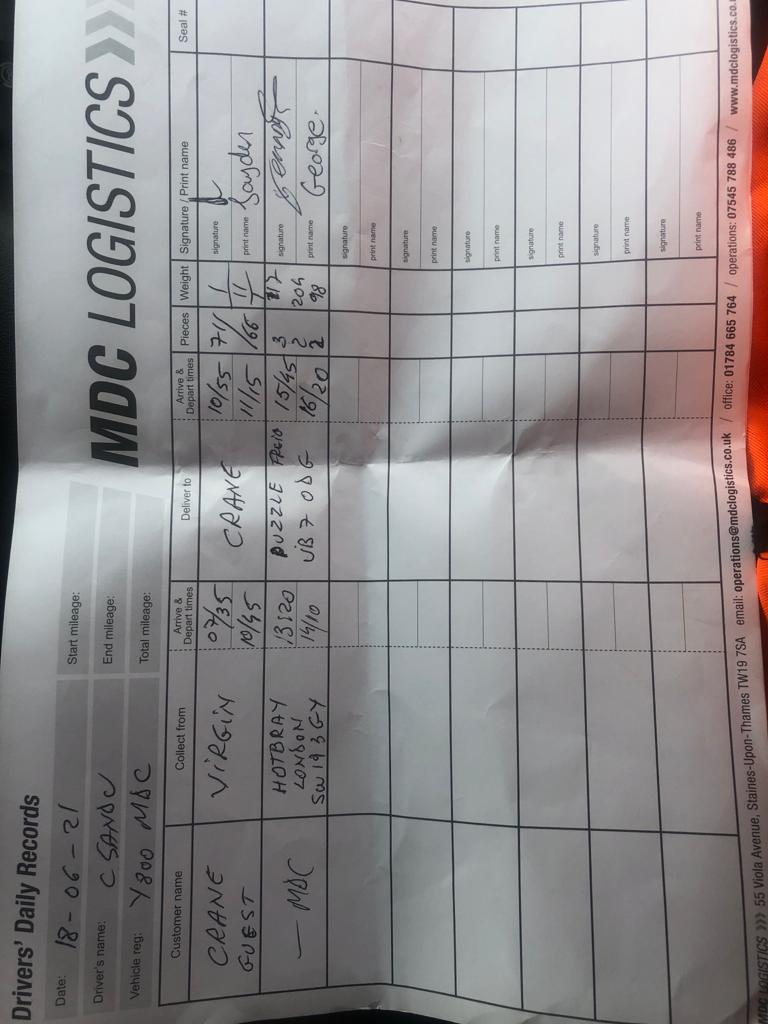 Drivers' Daily Records
MDC LOGISTICS
Date: 18-06-21
Start mileage:
Driver's name: C SANDU
End mileage:
Vehicle reg: Y800 MDC
Total mileage:
Customer name
Collect from
Arrive & Depart times
Deliver to
Arrive & Depart times
Pieces
Weight
Signature / Print name
Seal #
CRANE
GUEST
VIRGIN
07/35
10/45
CRANE
10/55
11/15
signature
print name Jayden
— MDC
HOTBRAY
LONDON
SW19 3GY
13:20
14/10
PUZZLE
UB7 0DG
15/45
16/20
3
2
2
204
98
signature
print name George.
signature
print name
signature
print name
signature
print name
signature
print name
signature
print name
signature
print name
MDC LOGISTICS >>> 55 Viola Avenue, Staines-Upon-Thames TW19 7SA email: operations@mdclogistics.co.uk / office: 01784 665 764 / operations: 07545 788 486 / www.mdclogistics.co.u